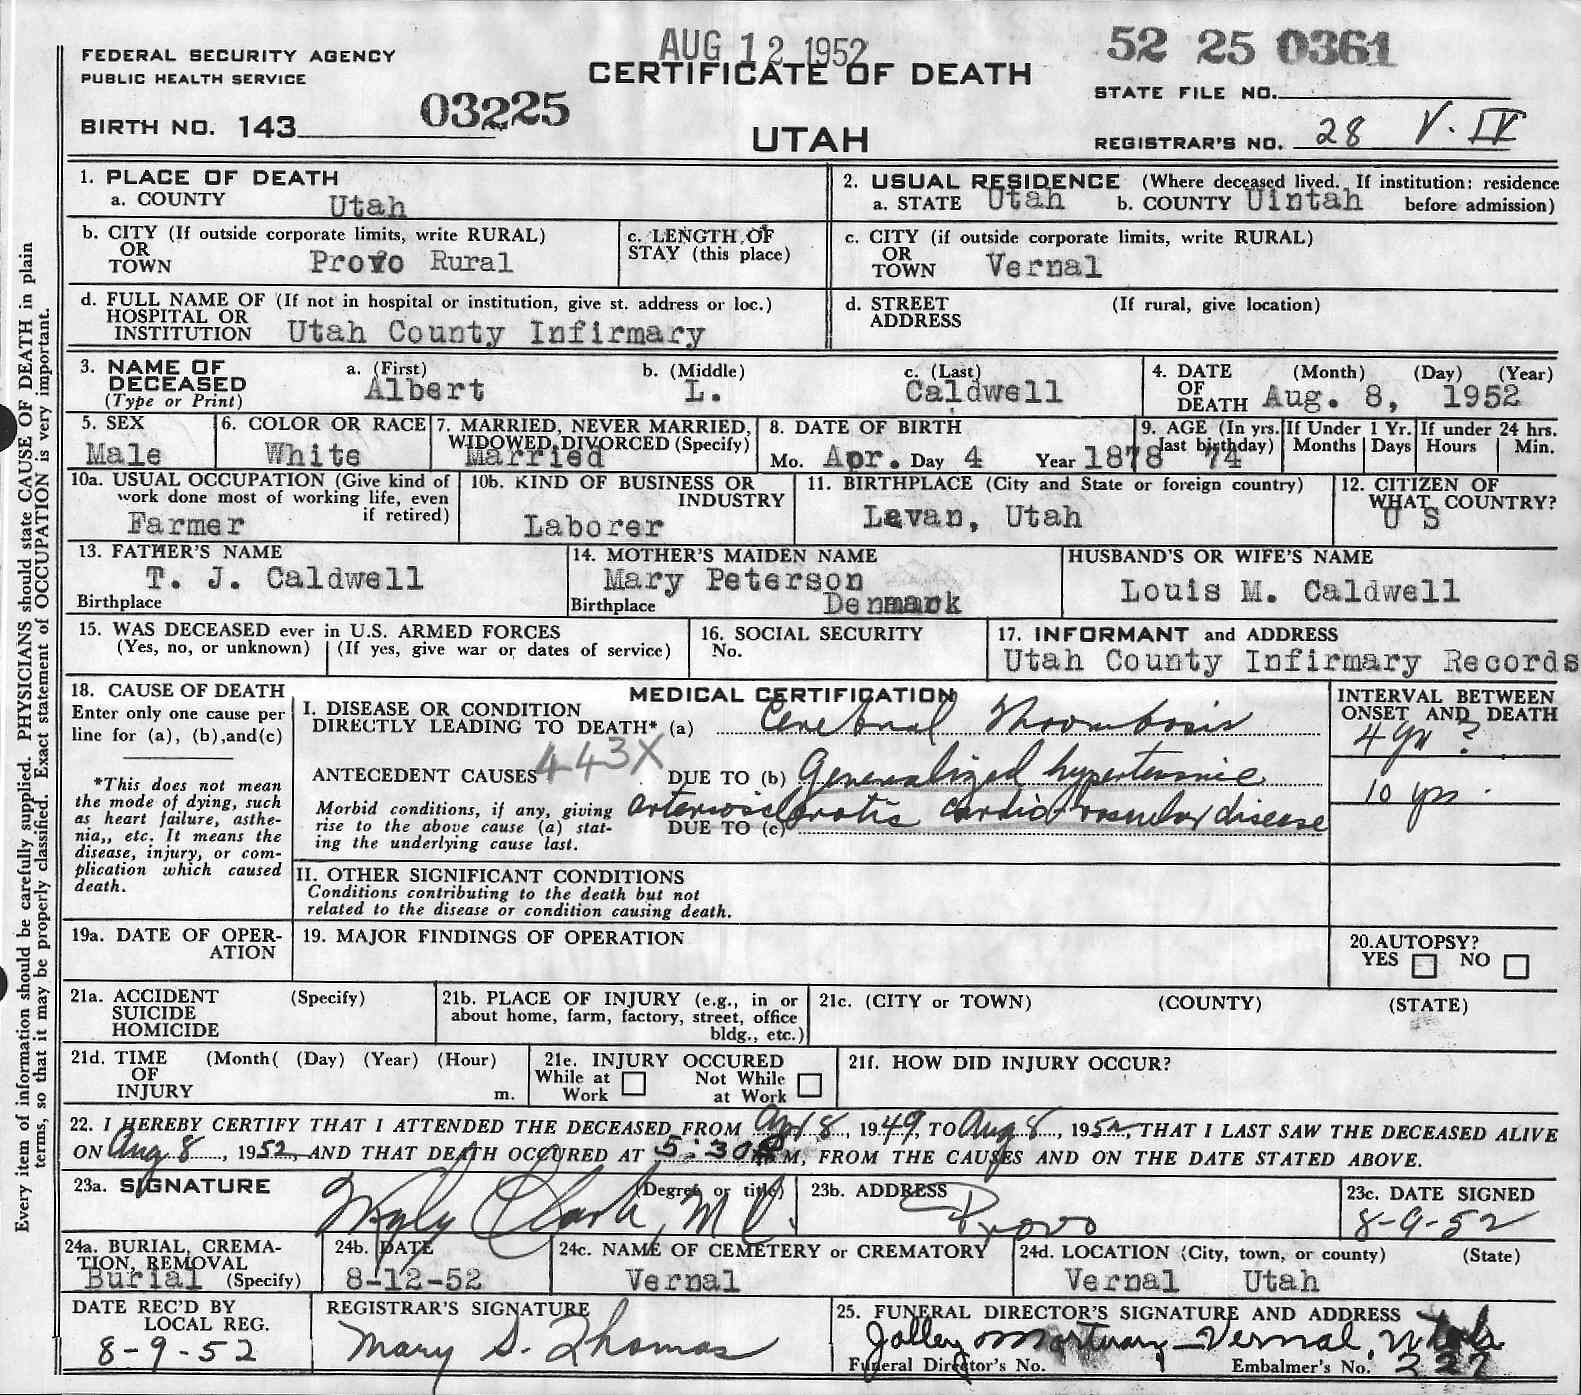 AUG 12 1952
52 25 0361
FEDERAL SECURITY AGENCY
PUBLIC HEALTH SERVICE
CERTIFICATE OF DEATH
STATE FILE NO.
BIRTH NO. 143
03225
UTAH
REGISTRAR'S NO. 28 V. IV
1. PLACE OF DEATH
a. COUNTY Utah
2. USUAL RESIDENCE (Where deceased lived. If institution: residence before admission)
a. STATE Utah b. COUNTY Uintah
b. CITY (If outside corporate limits, write RURAL)
OR
TOWN Provo Rural
c. LENGTH OF
STAY (this place)
c. CITY (if outside corporate limits, write RURAL)
OR
TOWN Vernal
d. FULL NAME OF (If not in hospital or institution, give st. address or loc.)
HOSPITAL OR
INSTITUTION Utah County Infirmary
d. STREET (If rural, give location)
ADDRESS
3. NAME OF
DECEASED
(Type or Print)
a. (First) b. (Middle) c. (Last)
Albert L. Caldwell
4. DATE (Month) (Day) (Year)
OF
DEATH Aug. 8, 1952
5. SEX
Male
6. COLOR OR RACE
White
7. MARRIED, NEVER MARRIED,
WIDOWED, DIVORCED (Specify)
Married
8. DATE OF BIRTH
Mo. Apr. Day 4 Year 1878
9. AGE (In yrs. last birthday)
74
If Under 1 Yr.
Months Days
If under 24 hrs.
Hours Min.
10a. USUAL OCCUPATION (Give kind of
work done most of working life, even
if retired)
Farmer
10b. KIND OF BUSINESS OR
INDUSTRY
Laborer
11. BIRTHPLACE (City and State or foreign country)
Levan, Utah
12. CITIZEN OF
WHAT COUNTRY?
U S
13. FATHER'S NAME
T. J. Caldwell
Birthplace
14. MOTHER'S MAIDEN NAME
Mary Peterson
Birthplace Denmark
HUSBAND'S OR WIFE'S NAME
Louis M. Caldwell
15. WAS DECEASED ever in U.S. ARMED FORCES
(Yes, no, or unknown) (If yes, give war or dates of service)
16. SOCIAL SECURITY
No.
17. INFORMANT and ADDRESS
Utah County Infirmary Records
18. CAUSE OF DEATH
Enter only one cause per
line for (a), (b), and (c)
*This does not mean
the mode of dying, such
as heart failure, asthe-
nia,, etc. It means the
disease, injury, or com-
plication which caused
death.
MEDICAL CERTIFICATION
I. DISEASE OR CONDITION
DIRECTLY LEADING TO DEATH* (a) Cerebral Thrombosis
443X
ANTECEDENT CAUSES DUE TO (b) Generalized hypertensive
Morbid conditions, if any, giving
rise to the above cause (a) stat-
ing the underlying cause last.
arteriosclerotic cardio vascular disease
DUE TO (c)
INTERVAL BETWEEN
ONSET AND DEATH
4 yr ?
10 yrs.
II. OTHER SIGNIFICANT CONDITIONS
Conditions contributing to the death but not
related to the disease or condition causing death.
19a. DATE OF OPER-
ATION
19. MAJOR FINDINGS OF OPERATION
20. AUTOPSY?
YES NO
21a. ACCIDENT (Specify)
SUICIDE
HOMICIDE
21b. PLACE OF INJURY (e.g., in or
about home, farm, factory, street, office
bldg., etc.)
21c. (CITY or TOWN) (COUNTY) (STATE)
21d. TIME (Month( (Day) (Year) (Hour)
OF
INJURY m.
21e. INJURY OCCURED
While at Work Not While at Work
21f. HOW DID INJURY OCCUR?
22. I HEREBY CERTIFY THAT I ATTENDED THE DECEASED FROM Apr 8, 1949, TO Aug 8, 1952, THAT I LAST SAW THE DECEASED ALIVE
ON Aug 8, 1952, AND THAT DEATH OCCURED AT 5:30 P M, FROM THE CAUSES AND ON THE DATE STATED ABOVE.
23a. SIGNATURE (Degree or title)
Clark, M D.
23b. ADDRESS
Provo
23c. DATE SIGNED
8-9-52
24a. BURIAL, CREMA-
TION, REMOVAL
Burial (Specify)
24b. DATE
8-12-52
24c. NAME OF CEMETERY or CREMATORY
Vernal
24d. LOCATION (City, town, or county) (State)
Vernal Utah
DATE REC'D BY
LOCAL REG.
8-9-52
REGISTRAR'S SIGNATURE
Mary S. Thomas
25. FUNERAL DIRECTOR'S SIGNATURE AND ADDRESS
Jolley Mortuary - Vernal, Utah
Funeral Director's No. Embalmer's No. 227
Every item of information should be carefully supplied. PHYSICIANS should state CAUSE OF DEATH in plain
terms, so that it may be properly classified. Exact statement of OCCUPATION is very important.